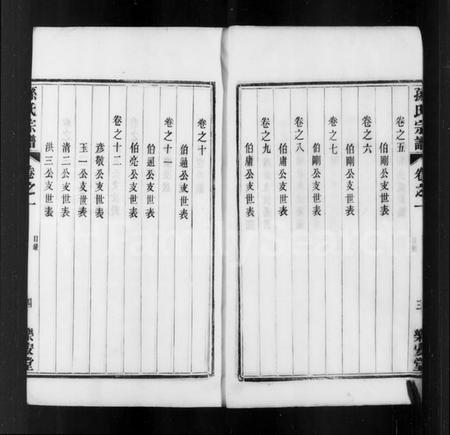 孫氏宗譜
卷之一
三
樂安堂
卷之五
伯剛公支世表
卷之六
伯剛公支世表
卷之七
伯剛公支世表
卷之八
伯庸公支世表
卷之九
伯庸公支世表
卷之十
伯通公支世表
卷之十一
伯通公支世表
伯亮公支世表
卷之十二
彦敬公支世表
玉一公支世表
清二公支世表
洪三公支世表
孫氏宗譜
卷之一
目錄
四
樂安堂